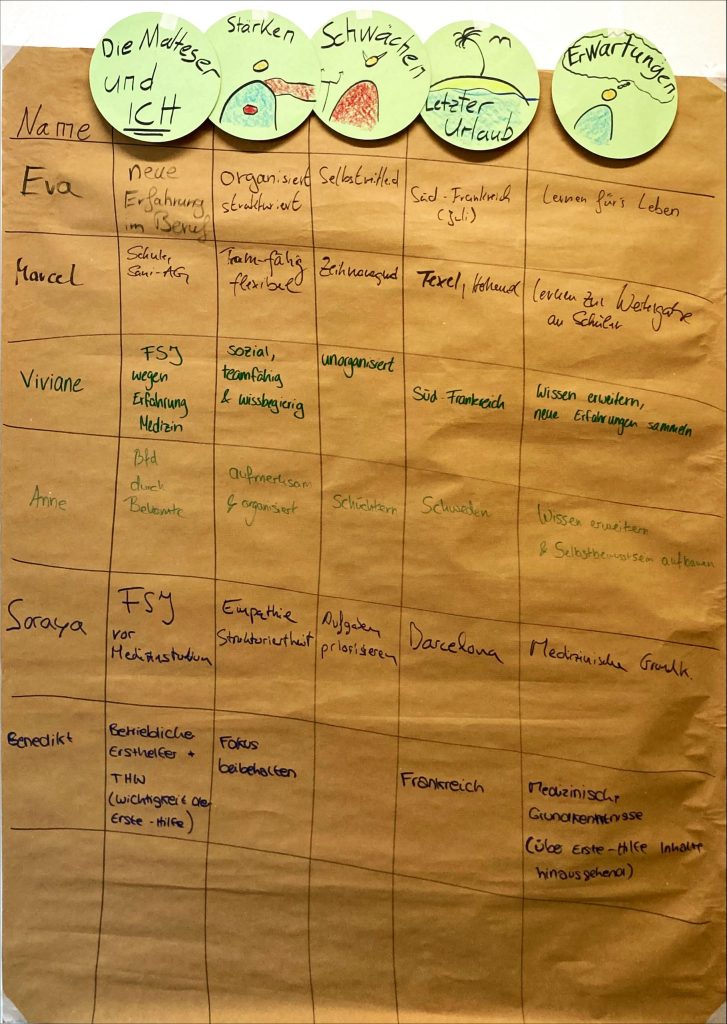 Die Malteser
und
ICH
Stärken
Schwächen
Letzter
Urlaub
Erwartungen
Name
Eva
neue
Erfahrung
im Beruf
organisiert
strukturiert
Selbstmitleid
Süd-Frankreich
(Juli)
Lernen für's Leben
Marcel
Schule,
Sani-AG
Teamfähig
flexibel
Texel, Holland
Lernen zur Weitergabe
an Schüler
Viviane
FSJ
wegen
Erfahrung
Medizin
sozial,
teamfähig
& wissbegierig
unorganisiert
Süd-Frankreich
Wissen erweitern,
neue Erfahrungen sammeln
Anne
Bfd
durch
Bekannte
aufmerksam
& organisiert
Schüchtern
Schweden
Wissen erweitern
& Selbstbewusstsein aufbauen
Soraya
FSJ
vor
Medizinstudium
Empathie
Strukturiertheit
Aufgaben
priorisieren
Barcelona
Medizinische Grundk.
Benedikt
Betriebliche
Ersthelfer +
THW
(Wichtigkeit der
Erste-Hilfe)
Fokus
beibehalten
Frankreich
Medizinische
Grundkenntnisse
(über Erste-Hilfe Inhalte
hinausgehend)